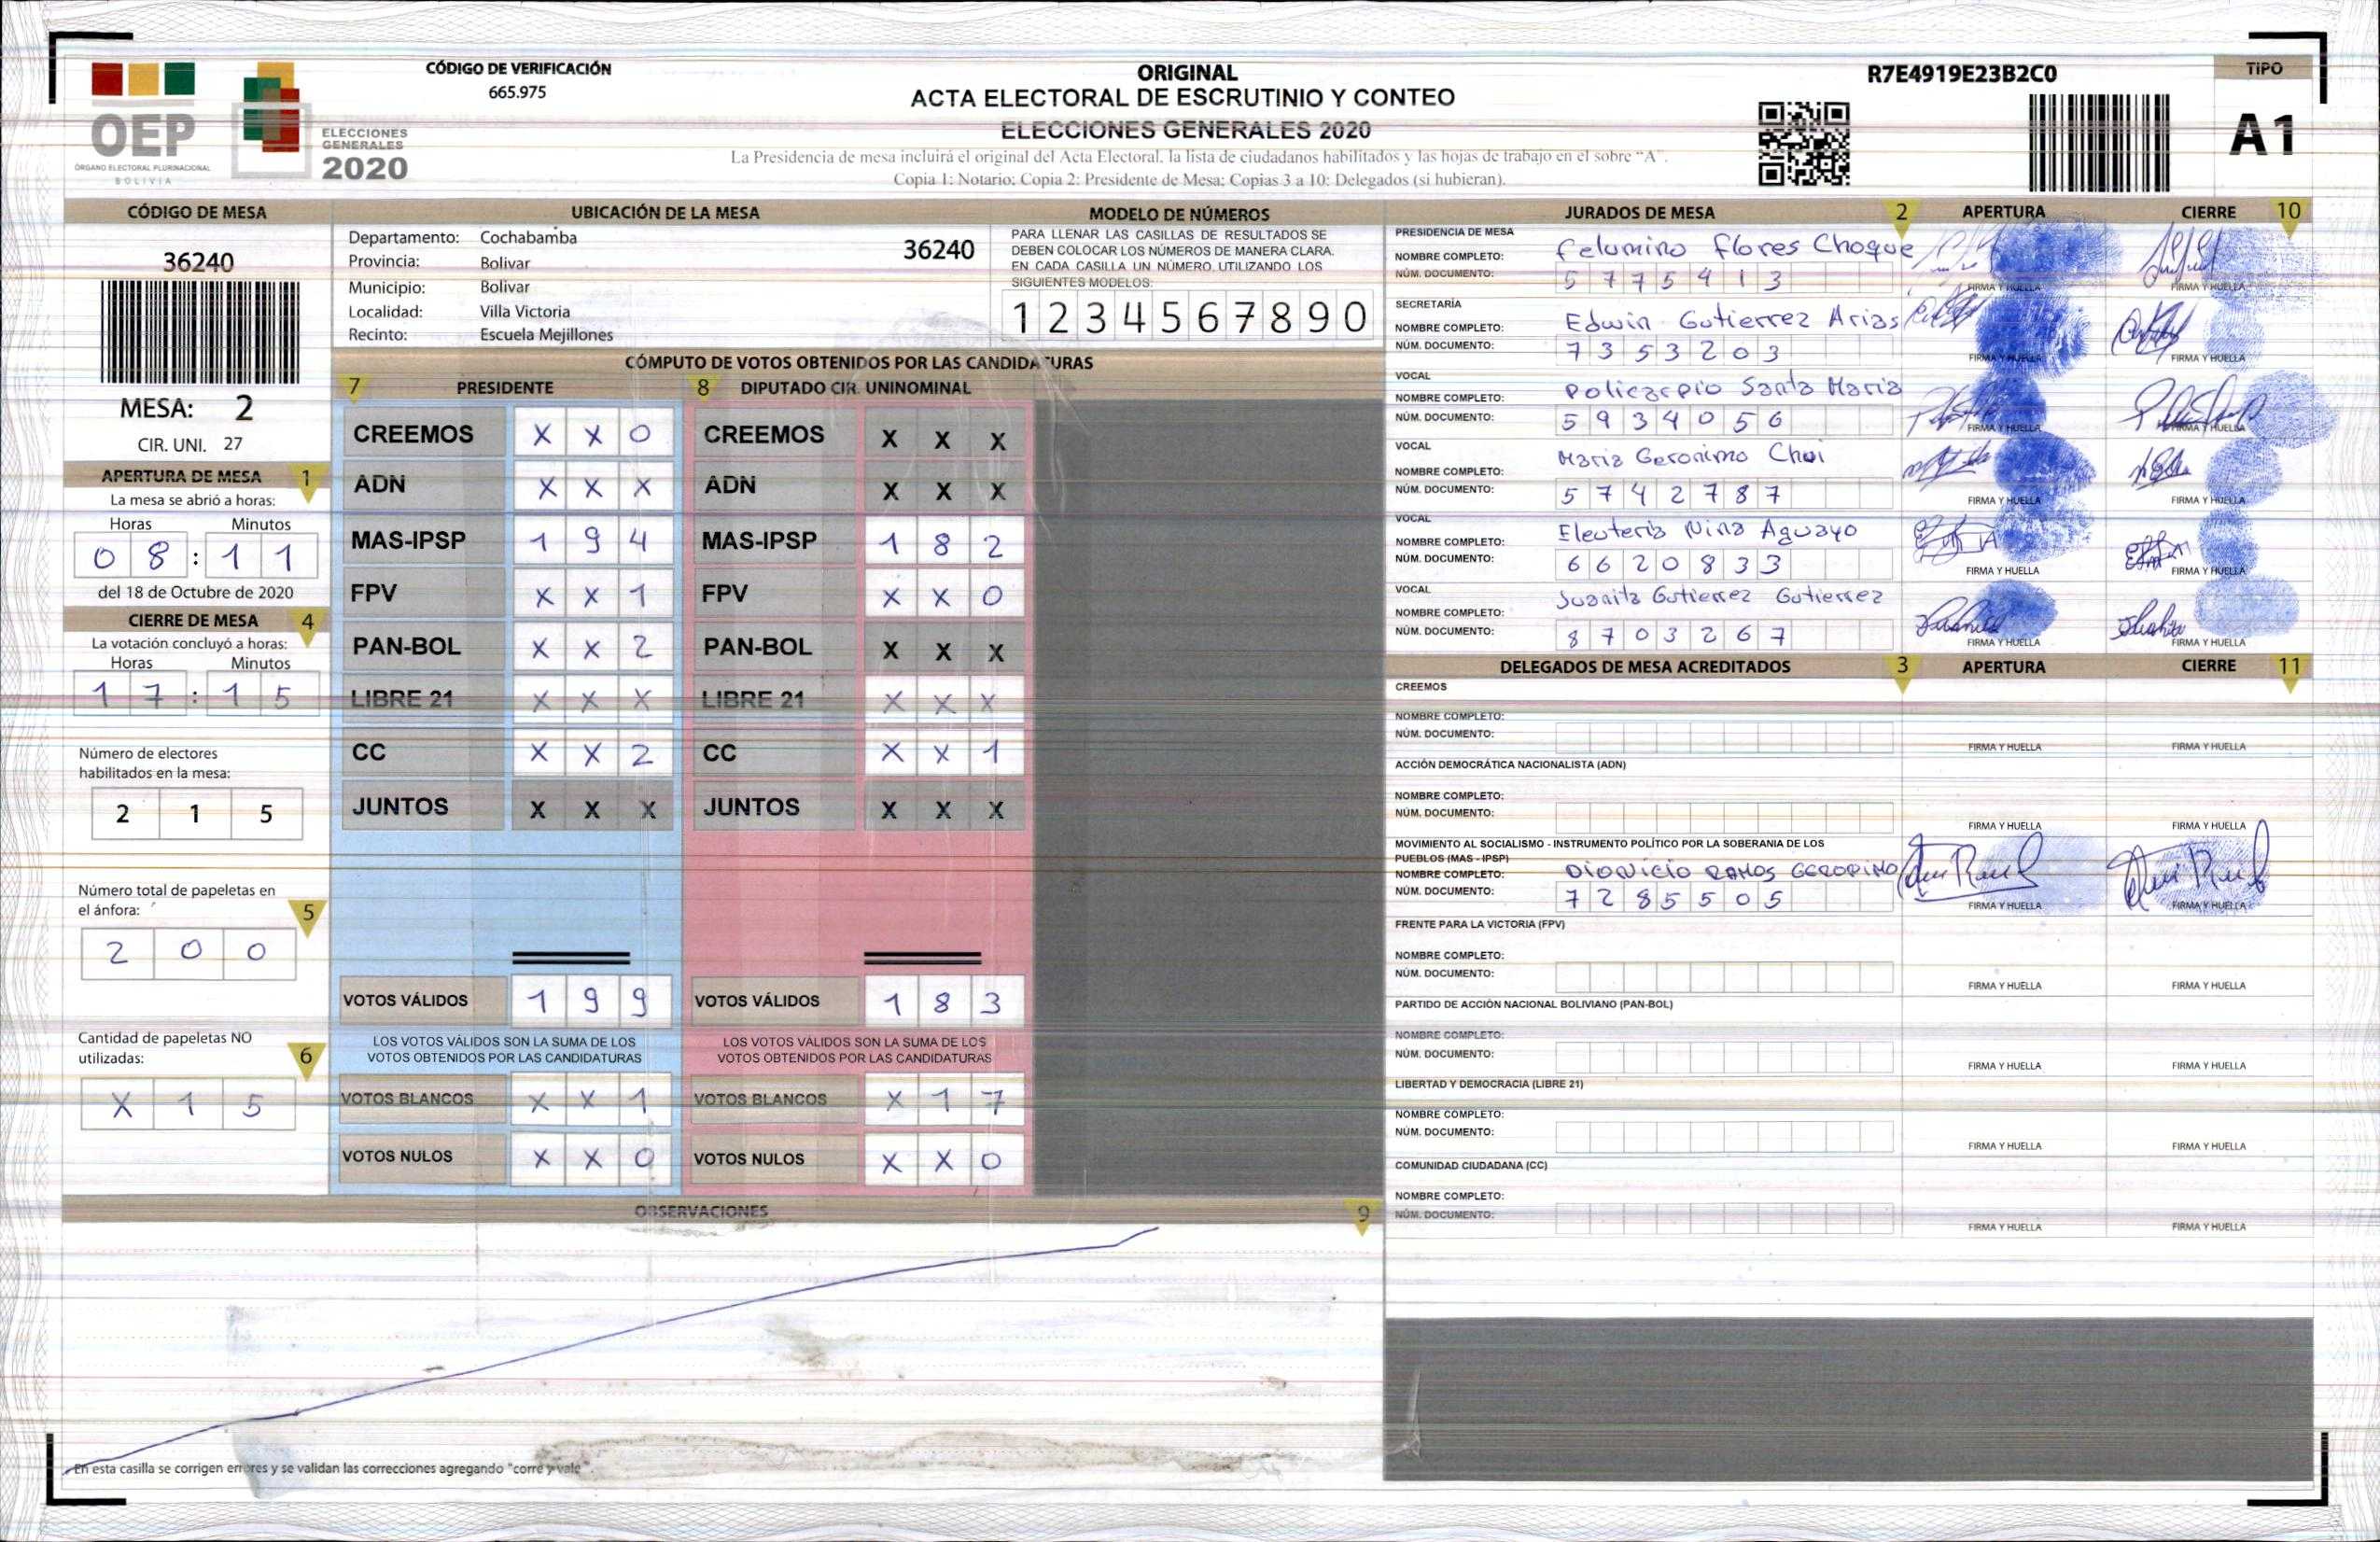 CÓDIGO DE VERIFICACIÓN
665.975
ORIGINAL
ACTA ELECTORAL DE ESCRUTINIO Y CONTEO
ELECCIONES GENERALES 2020
La Presidencia de mesa incluirá el original del Acta Electoral, la lista de ciudadanos habilitados y las hojas de trabajo en el sobre "A".
Copia 1: Notario; Copia 2: Presidente de Mesa; Copias 3 a 10: Delegados (si hubieran).
R7E4919E23B2C0
TIPO
A1
OEP
ÓRGANO ELECTORAL PLURINACIONAL
BOLIVIA
ELECCIONES
GENERALES
2020
CÓDIGO DE MESA
36240
MESA: 2
CIR. UNI. 27
APERTURA DE MESA 1
La mesa se abrió a horas:
Horas Minutos
0 8 : 1 1
del 18 de Octubre de 2020
CIERRE DE MESA 4
La votación concluyó a horas:
Horas Minutos
1 7 : 1 5
Número de electores
habilitados en la mesa:
2 1 5
Número total de papeletas en
el ánfora: 5
2 0 0
Cantidad de papeletas NO
utilizadas: 6
X 1 5
UBICACIÓN DE LA MESA
Departamento: Cochabamba
36240
Provincia: Bolivar
Municipio: Bolivar
Localidad: Villa Victoria
Recinto: Escuela Mejillones
MODELO DE NÚMEROS
PARA LLENAR LAS CASILLAS DE RESULTADOS SE
DEBEN COLOCAR LOS NÚMEROS DE MANERA CLARA.
EN CADA CASILLA UN NÚMERO, UTILIZANDO LOS
SIGUIENTES MODELOS:
1 2 3 4 5 6 7 8 9 0
CÓMPUTO DE VOTOS OBTENIDOS POR LAS CANDIDATURAS
7 PRESIDENTE 8 DIPUTADO CIR. UNINOMINAL
CREEMOS X X 0 CREEMOS X X X
ADN X X X ADN X X X
MAS-IPSP 1 9 4 MAS-IPSP 1 8 2
FPV X X 1 FPV X X 0
PAN-BOL X X 2 PAN-BOL X X X
LIBRE 21 X X X LIBRE 21 X X X
CC X X 2 CC X X 1
JUNTOS X X X JUNTOS X X X
VOTOS VÁLIDOS 1 9 9 VOTOS VÁLIDOS 1 8 3
LOS VOTOS VÁLIDOS SON LA SUMA DE LOS LOS VOTOS VÁLIDOS SON LA SUMA DE LOS
VOTOS OBTENIDOS POR LAS CANDIDATURAS VOTOS OBTENIDOS POR LAS CANDIDATURAS
VOTOS BLANCOS X X 1 VOTOS BLANCOS X 1 7
VOTOS NULOS X X 0 VOTOS NULOS X X 0
OBSERVACIONES 9
En esta casilla se corrigen errores y se validan las correcciones agregando "corre y vale".
JURADOS DE MESA 2 APERTURA CIERRE 10
PRESIDENCIA DE MESA
NOMBRE COMPLETO: Felumino Flores Choque
NÚM. DOCUMENTO: 5 7 7 5 4 1 3
FIRMA Y HUELLA FIRMA Y HUELLA
SECRETARÍA
NOMBRE COMPLETO: Edwin Gutierrez Arias
NÚM. DOCUMENTO: 7 3 5 3 2 0 3
FIRMA Y HUELLA FIRMA Y HUELLA
VOCAL
NOMBRE COMPLETO: Policarpio Santa Maria
NÚM. DOCUMENTO: 5 9 3 4 0 5 6
FIRMA Y HUELLA FIRMA Y HUELLA
VOCAL
NOMBRE COMPLETO: Maria Geronimo Choi
NÚM. DOCUMENTO: 5 7 4 2 7 8 7
FIRMA Y HUELLA FIRMA Y HUELLA
VOCAL
NOMBRE COMPLETO: Eleuteria Nina Aguayo
NÚM. DOCUMENTO: 6 6 2 0 8 3 3
FIRMA Y HUELLA FIRMA Y HUELLA
VOCAL
NOMBRE COMPLETO: Juanita Gutierrez Gutierrez
NÚM. DOCUMENTO: 8 7 0 3 2 6 7
FIRMA Y HUELLA FIRMA Y HUELLA
DELEGADOS DE MESA ACREDITADOS 3 APERTURA CIERRE 11
CREEMOS
NOMBRE COMPLETO:
NÚM. DOCUMENTO:
FIRMA Y HUELLA FIRMA Y HUELLA
ACCIÓN DEMOCRÁTICA NACIONALISTA (ADN)
NOMBRE COMPLETO:
NÚM. DOCUMENTO:
FIRMA Y HUELLA FIRMA Y HUELLA
MOVIMIENTO AL SOCIALISMO - INSTRUMENTO POLÍTICO POR LA SOBERANIA DE LOS
PUEBLOS (MAS - IPSP)
NOMBRE COMPLETO: DIONICIO RAMOS GERONIMO
NÚM. DOCUMENTO: 7 2 8 5 5 0 5
FIRMA Y HUELLA FIRMA Y HUELLA
FRENTE PARA LA VICTORIA (FPV)
NOMBRE COMPLETO:
NÚM. DOCUMENTO:
FIRMA Y HUELLA FIRMA Y HUELLA
PARTIDO DE ACCIÓN NACIONAL BOLIVIANO (PAN-BOL)
NOMBRE COMPLETO:
NÚM. DOCUMENTO:
FIRMA Y HUELLA FIRMA Y HUELLA
LIBERTAD Y DEMOCRACIA (LIBRE 21)
NOMBRE COMPLETO:
NÚM. DOCUMENTO:
FIRMA Y HUELLA FIRMA Y HUELLA
COMUNIDAD CIUDADANA (CC)
NOMBRE COMPLETO:
NÚM. DOCUMENTO:
FIRMA Y HUELLA FIRMA Y HUELLA